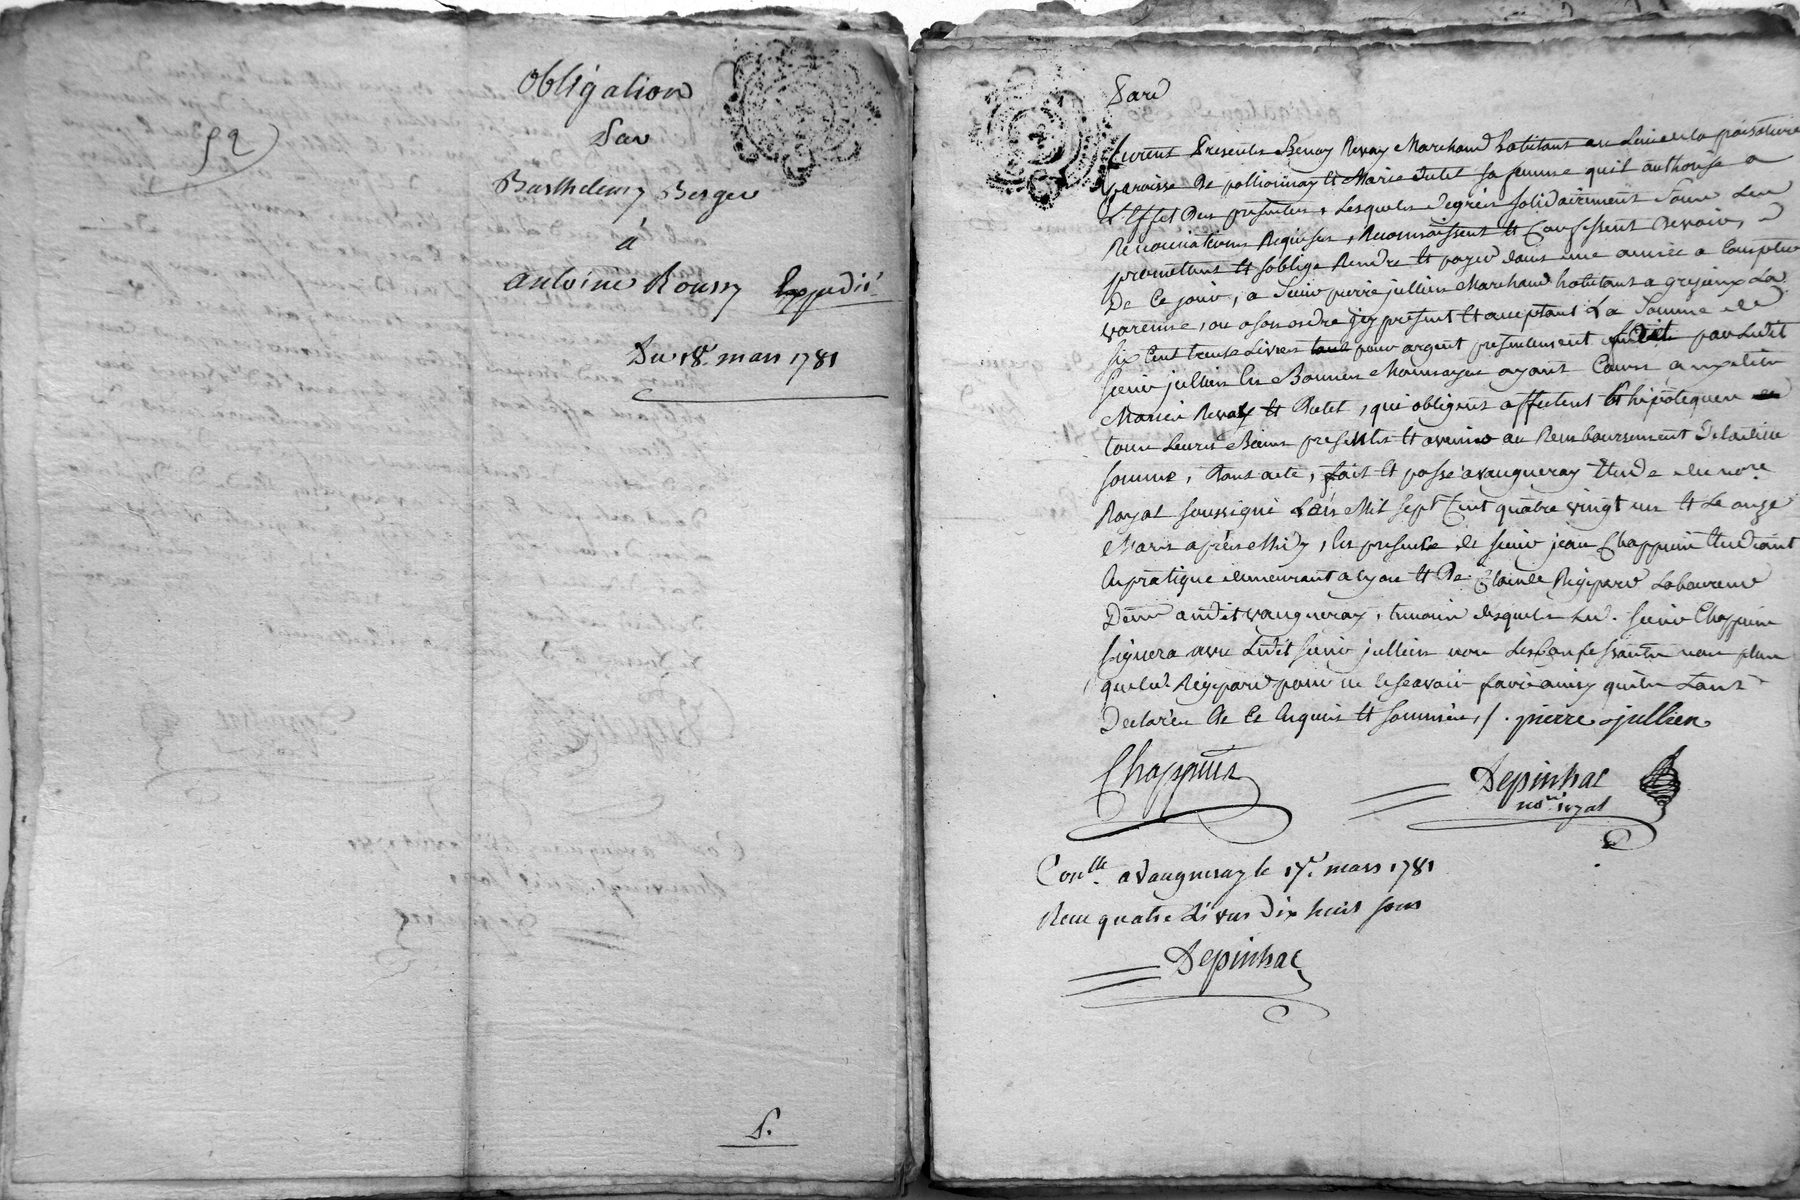 52
Obligation
Par
Barthelemy Berger
à
Antoine Roussy Expedié
Du 18e. mars 1781
S.
Pard
furent Presents Benoy Revay Marchand habitant au Lieu de la poisatiere
paroisse De pollionnay et Marie Dutel sa femme quil authorise a
L'Effet Des presentes, Lesquels De grés solidairement sous Les
Renonciations Requises, Reconnoissent et Confessent Devoir,
promettant et soblige Rendre et payer dans une année a Compter
De Ce jour, a Sieur pierre jullien Marchand habitant a grezieux La
varenne, ou a son ordre jcy present et acceptant La Somme de
six Cent trente Livres pour argent presentement par Ledit
sieur jullien En Bonnes Monnoyes ayant Cours auxdits
Mariés Revay et Dutel, qui obligent affectent et hipotequent
tous Leurs Biens presents et avenir au Remboursement De ladite
somme, Dont acte, fait et passé a vaugneray Etude du nore
Royal soussigné L'an Mil sept Cent quatre vingt un et Le onze
Mars aprés Midy, En presence de sieur jean Chappuis Etudiant
En pratique demeurant a Lyon et De Claude Rigipard Laboureur
Demt audit vaugneray, temoin desquels Led. sieur Chappuis
signera avec Ledit sieur jullien non Les Confessants non plus
que Led. Rigipard pour ne le sçavoir faire ainsy quils L'ont
Declarés De Ce Enquis et sommés, /. pierre jullien
Chappuis
Depinhac
nore. royal
Conlle a vaugneray le 17e. mars 1781
Reçu quatre Livres Dix huit sous
Depinhac